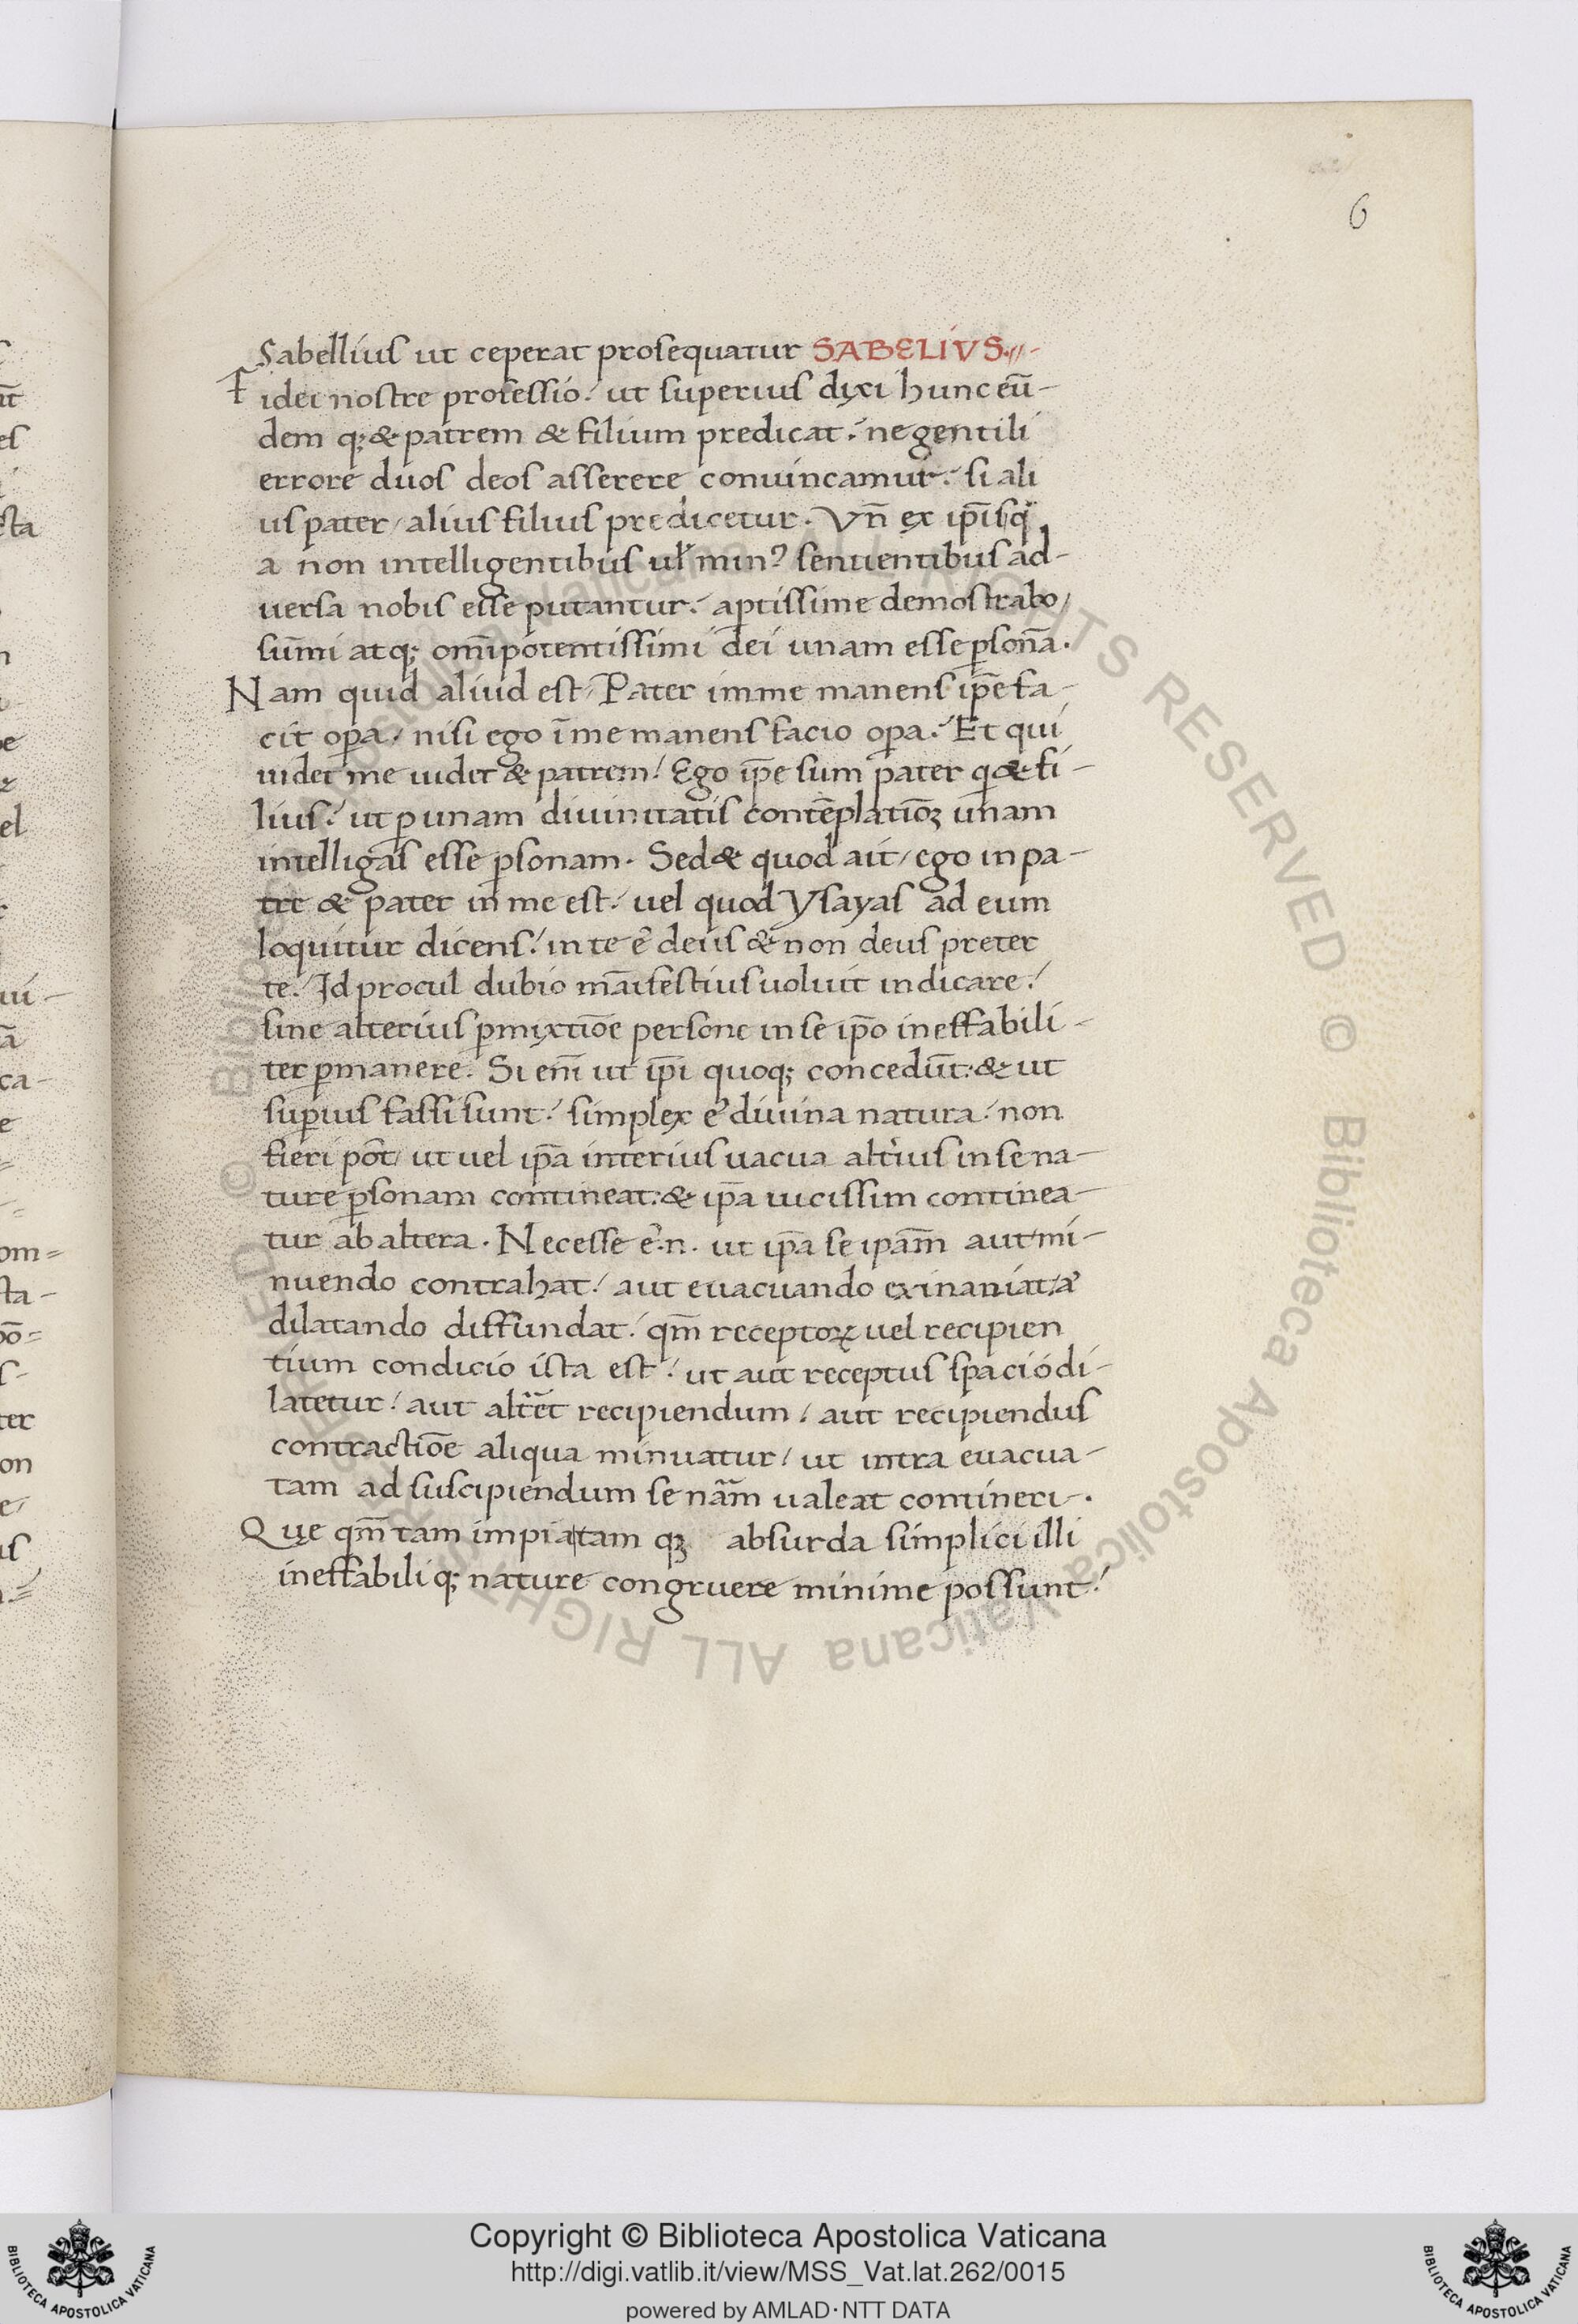 6
Sabellius ut ceperat prosequatur SABELIVS.
Fidei nostre professio ut superius dixi hunc eū-
dem q; & patrem & filium predicat. ne gentili
errore duos deos asserere conuincamur. si ali
us pater/ alius filius predicetur. Vn̄ ex ip̄is q̄
a non intelligentibus uł min⁹ sentientibus ad-
uersa nobis esse putantur. aptissime demostrabo/
sūmi atq; om̄ipotentissimi dei unam esse ꝑsonā.
Nam quid aliud est. Pater in me manens ip̄e fa-
cit oꝑa/ nisi ego ī me manens facio oꝑa. Et qui
uidet me uidet & patrem/ Ego ip̄e sum pater q & fi-
lius. ut ꝑ unam diuinitatis contēplatiōꝫ unam
intelligas esse ꝑsonam. Sed & quod ait/ ego in pa-
tre & pater in me est. uel quod ysayas ad eum
loquitur dicens. in te ē deus & non deus preter
te. Id procul dubio māifestius uoluit indicare.
sine alterius ꝑmixtiōe persone in se ip̄o ineffabili-
ter ꝑmanere. Si enī ut ip̄i quoq; concedūt. & ut
suꝑius fassi sunt. simplex ē diuina natura. non
fieri pōt/ ut uel ip̄a interius uacua alt̄ius in se na-
ture ꝑsonam contineat. & ip̄a uicissim continea-
tur ab altera. Necesse ē .n. ut ip̄a se ipām aut mi-
nuendo contrahat/ aut euacuando exinaniat/ a᷒
dilatando diffundat. qm̄ receptoꝝ uel recipien
tium condicio ista est. ut aut receptus spacio di-
latetur/ aut alt̄et recipiendum/ aut recipiendus
contractiōe aliqua minuatur/ ut intra euacua-
tam ad suscipiendum se nām ualeat contineri.
Que qm̄ tam impia tam qꝫ absurda simplici illi
ineffabili q; nature congruere minime possunt.
© Biblioteca Apostolica Vaticana ALL RIGHTS RESERVED © Biblioteca Apostolica Vaticana ALL RIGHTS RESERVED
Copyright © Biblioteca Apostolica Vaticana
http://digi.vatlib.it/view/MSS_Vat.lat.262/0015
powered by AMLAD·NTT DATA
BIBLIOTECA APOSTOLICA VATICANA
BIBLIOTECA APOSTOLICA VATICANA